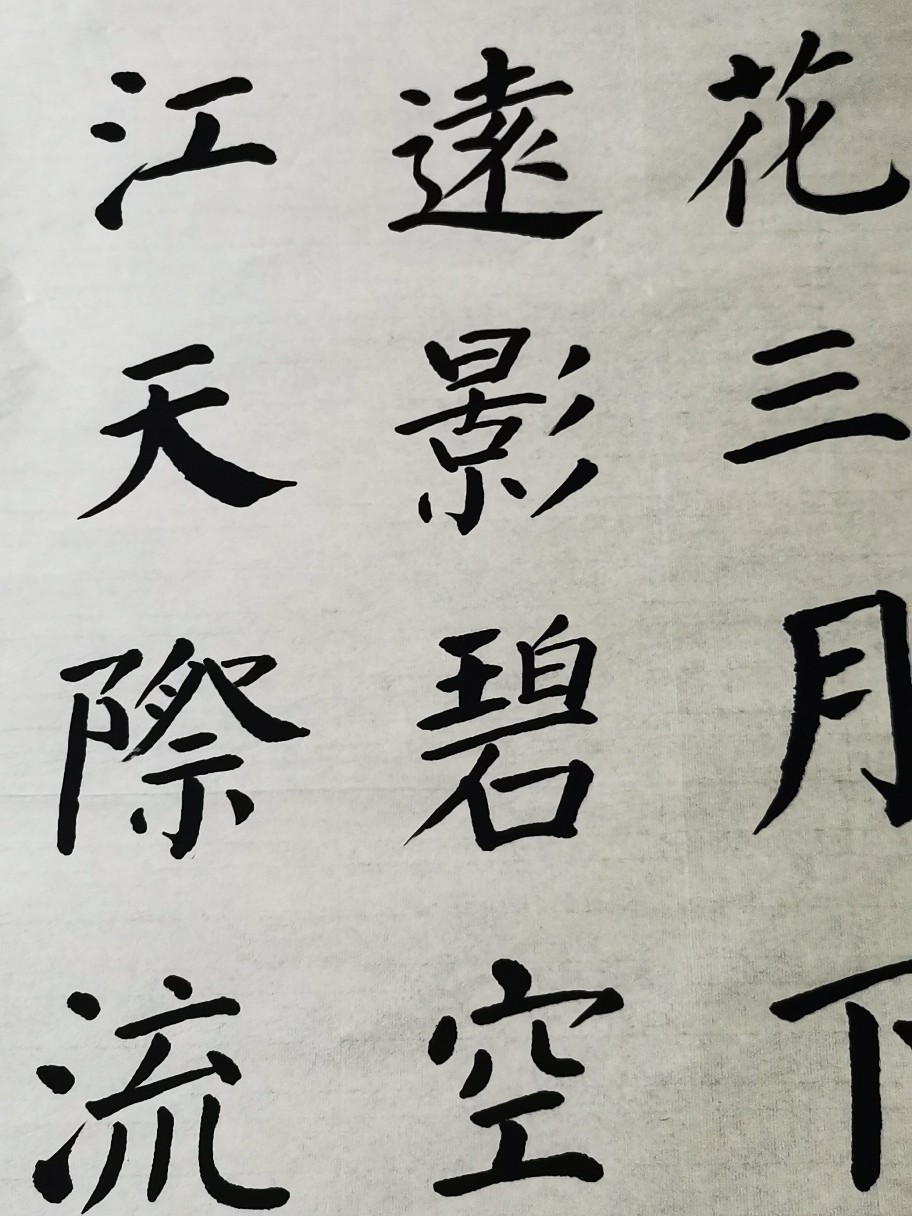 花三月下
遠影碧空
江天際流